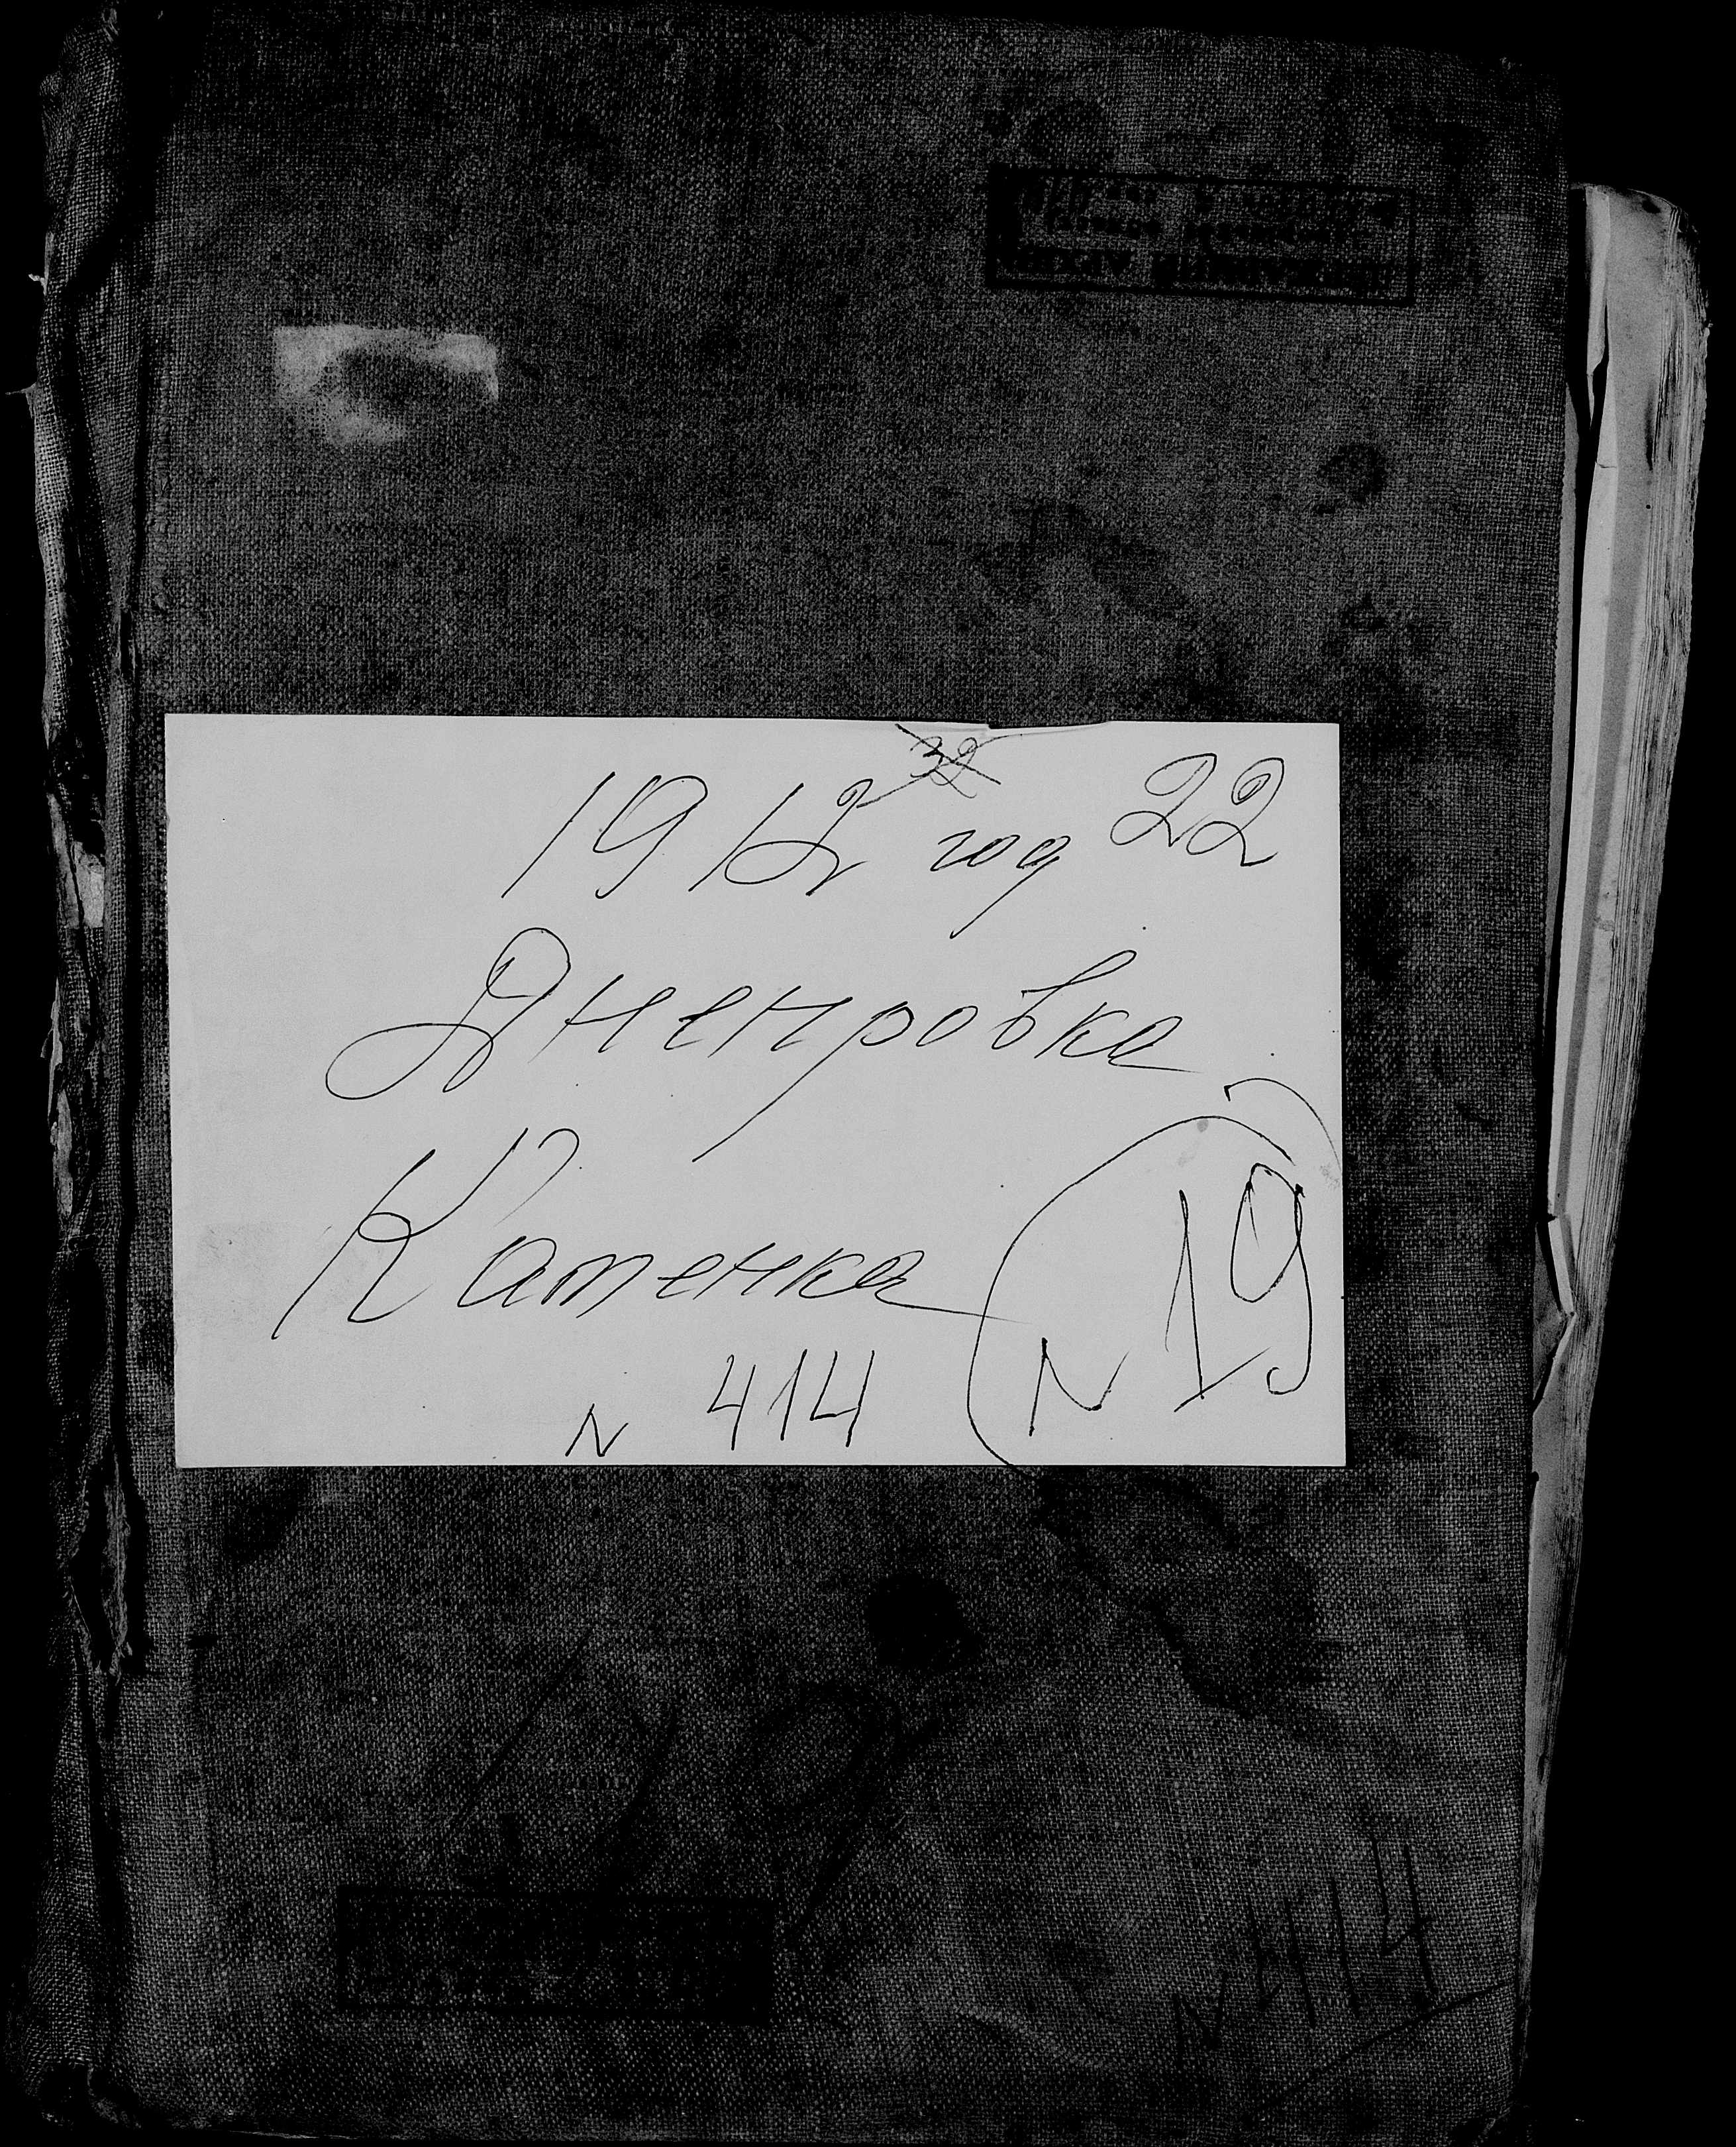 32
1912 год 22
Днепровка
Каменка
N 19
N 414
N 414